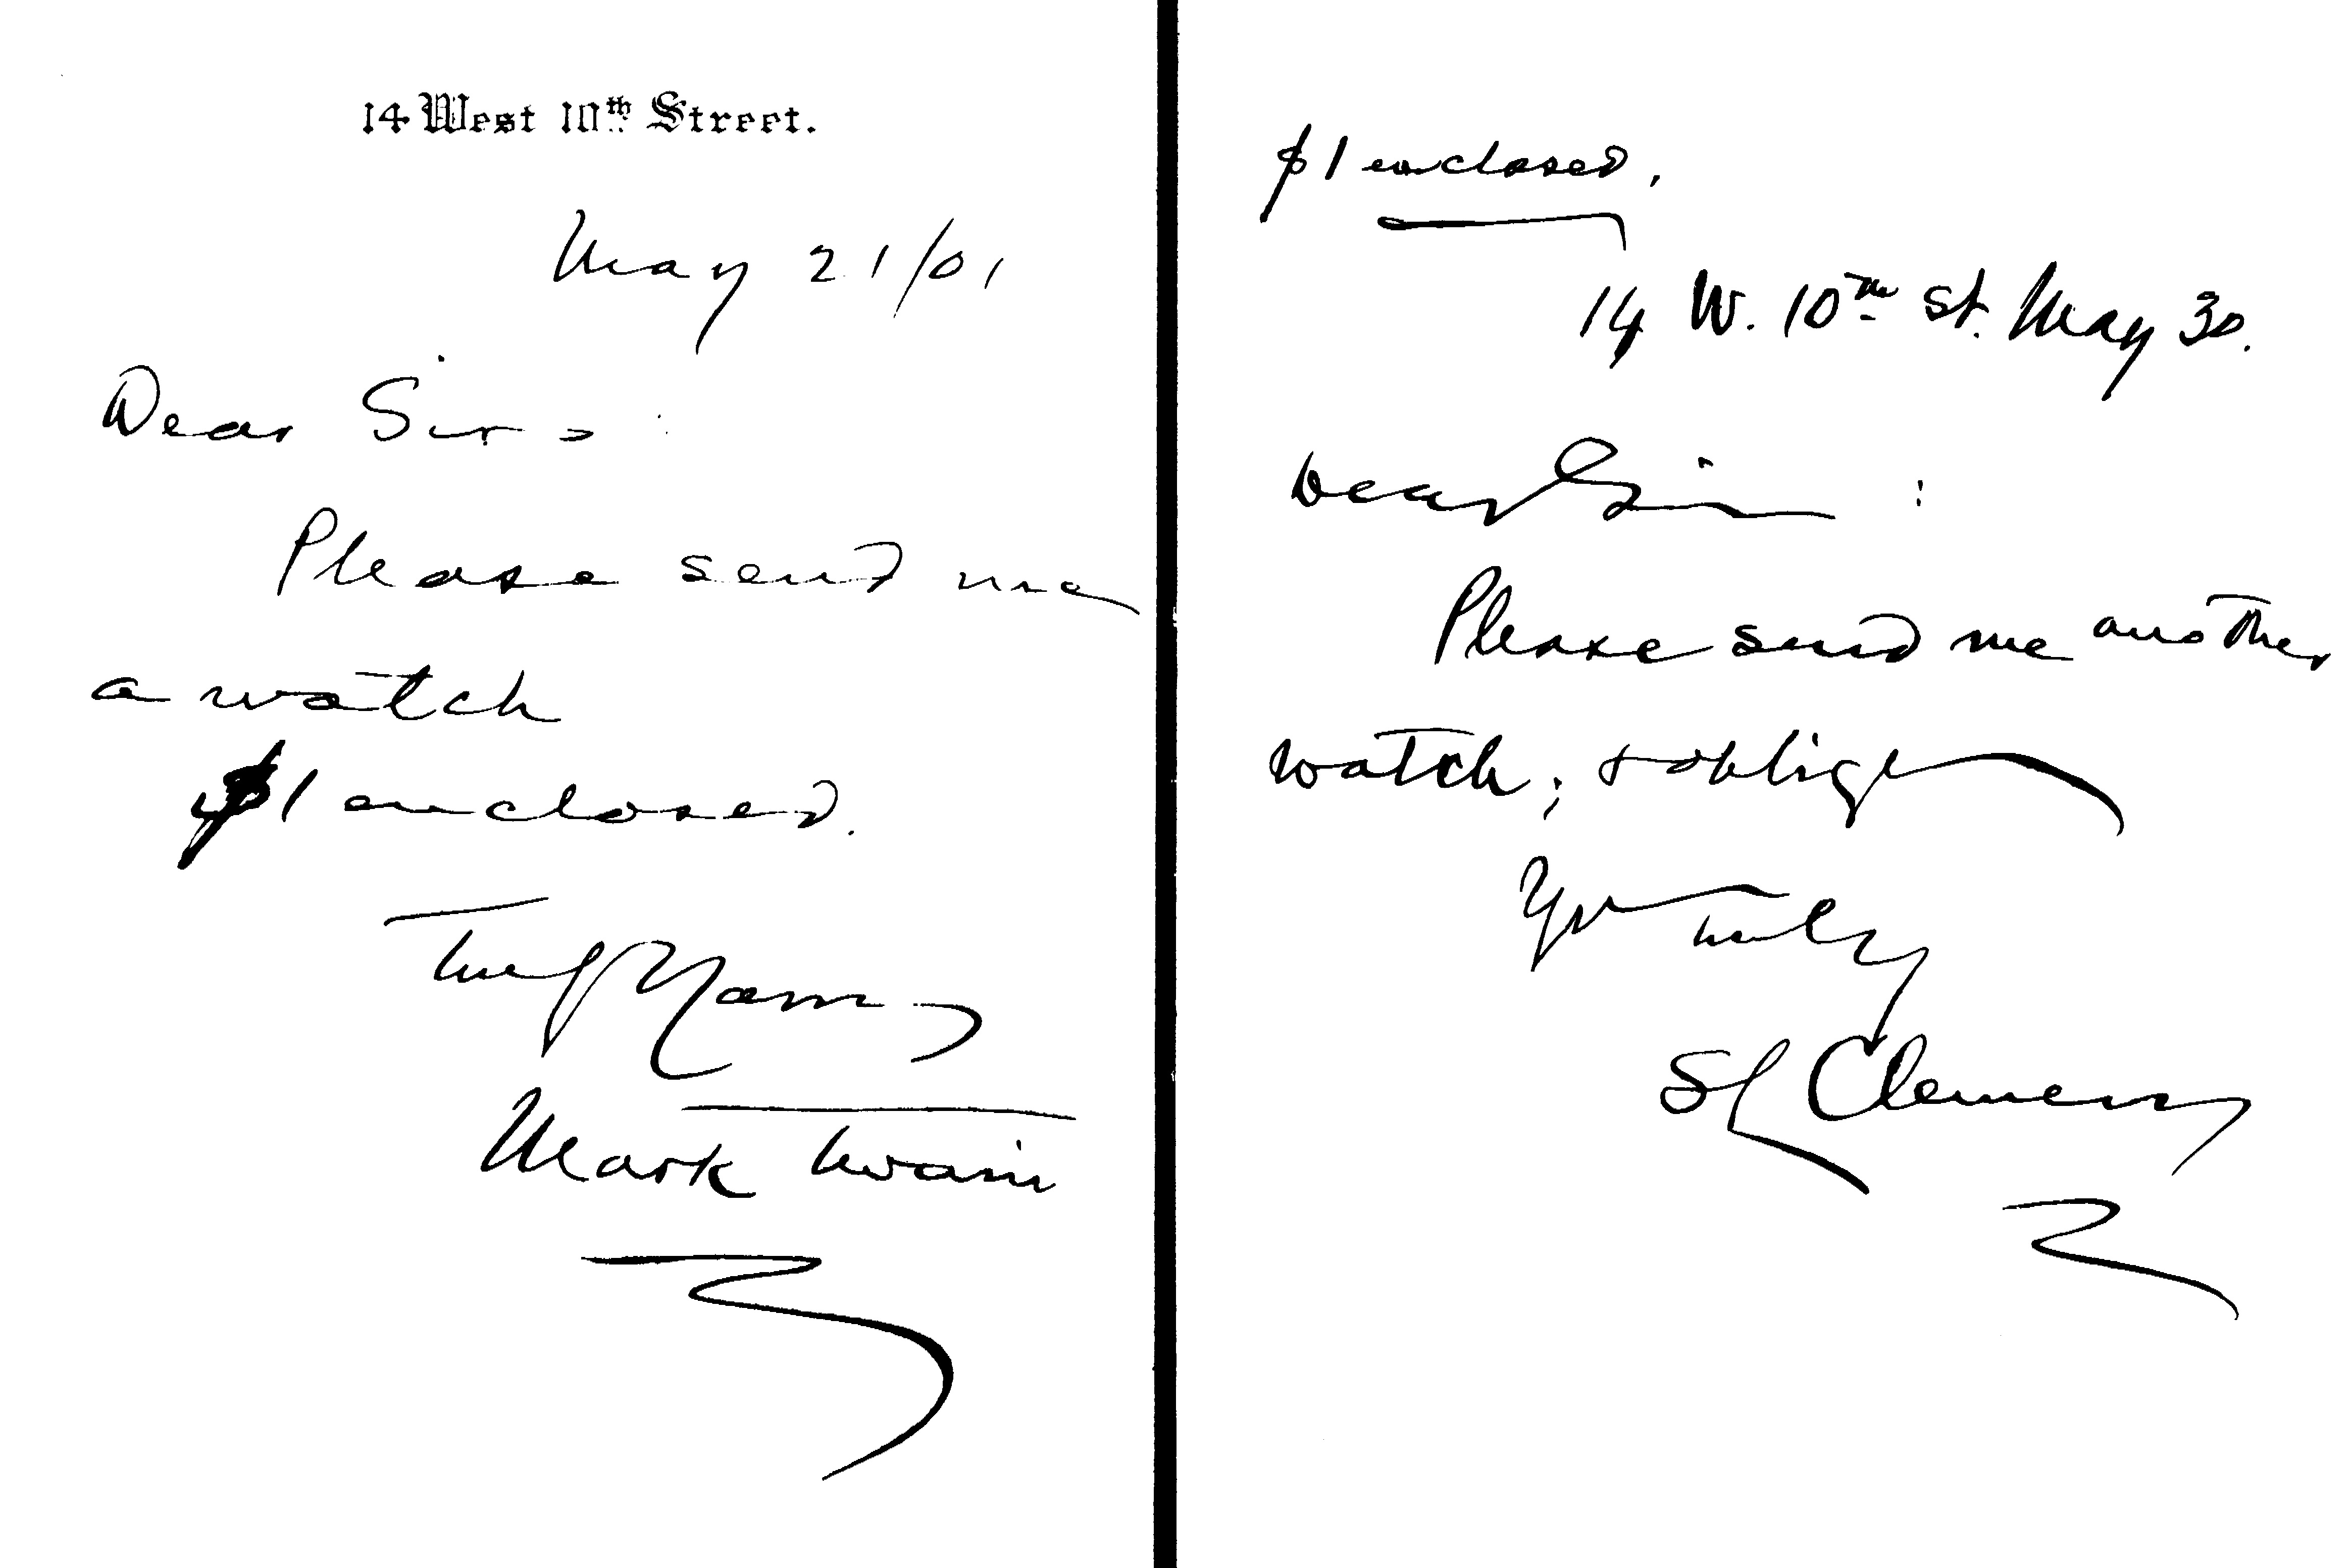 14 West 10th Street.
May 21/01
Dear Sir:
Please send me
a watch
$1 enclosed.
Truly Yours
Mark Twain
$1 enclosed.
14 W. 10th St. May 30.
Dear Sir:
Please send me another
watch; & oblige
Yrs truly
SL Clemens